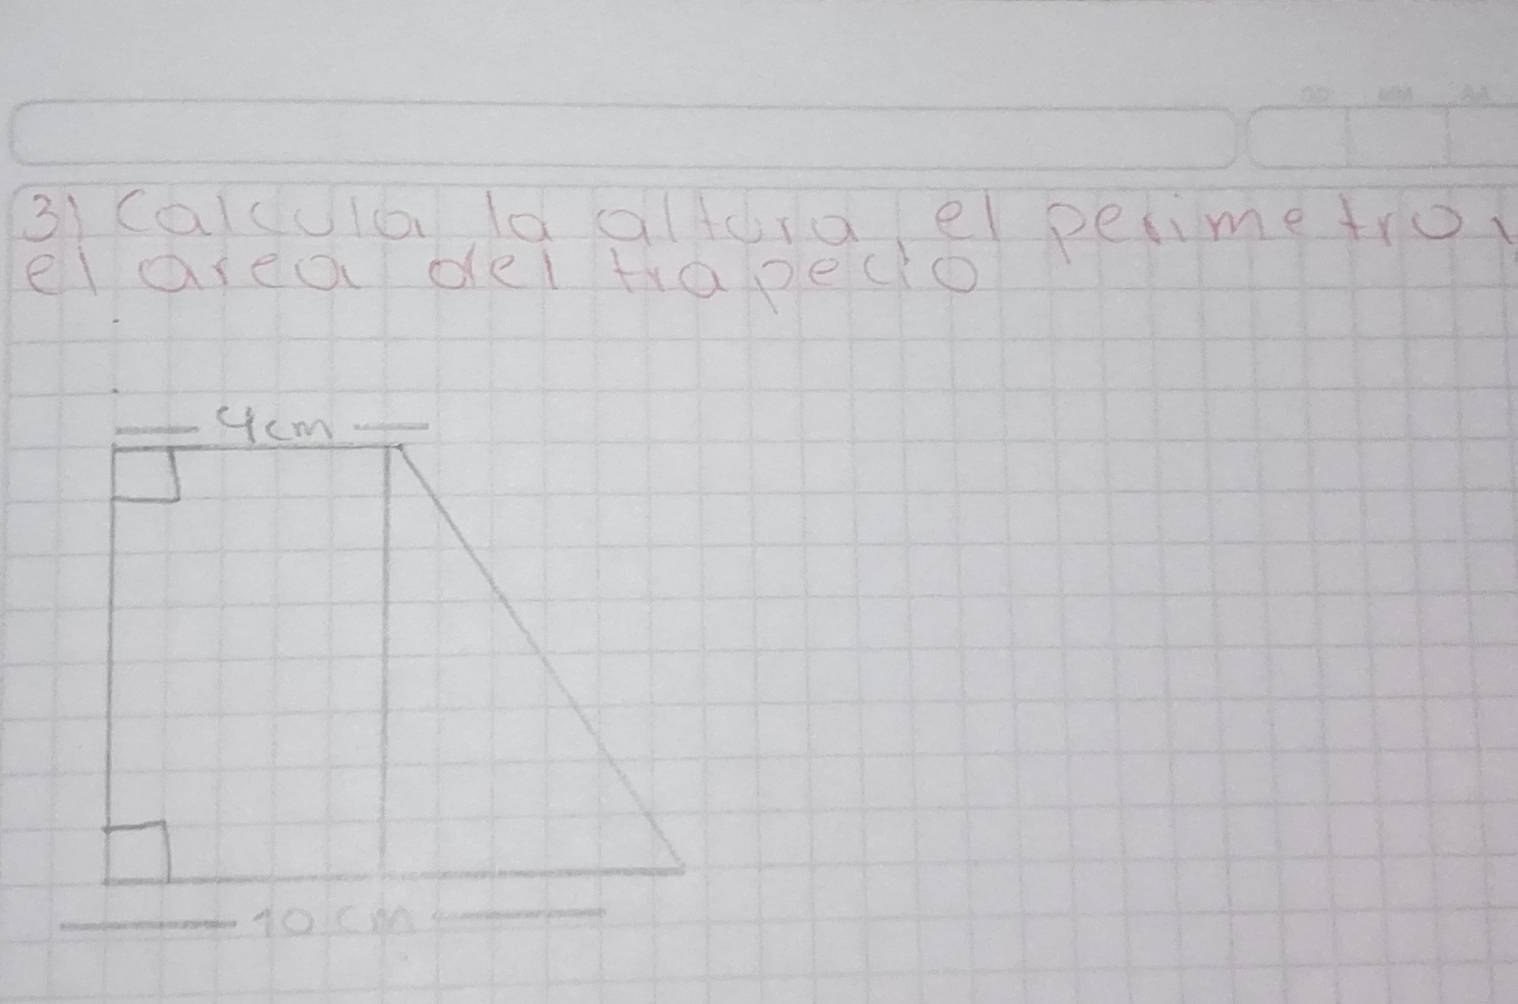 3) Calcula la altura, el perimetro y
el area del trapecio
4cm
10 cm